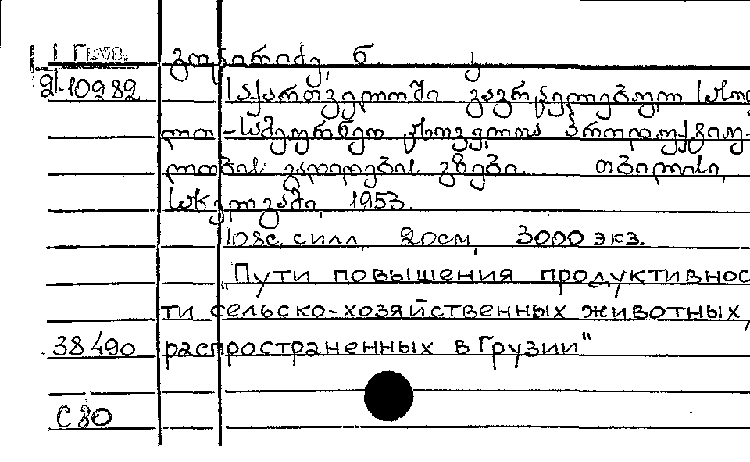 გოცირიძე, ნ.
21.10982 საქართველოში გავრცელებულ სასოფ-
ლო-სამეურნეო ცხოველთა პროდუქტიუ-
ლობის გადიდების გზები. თბილისი,
საბჭ. 1953.
108с. с илл. 20см, 3000 экз.
„Пути повышения продуктивнос
ти сельско-хозяйственных животных,
38.490 распространенных в Грузии"
С 80